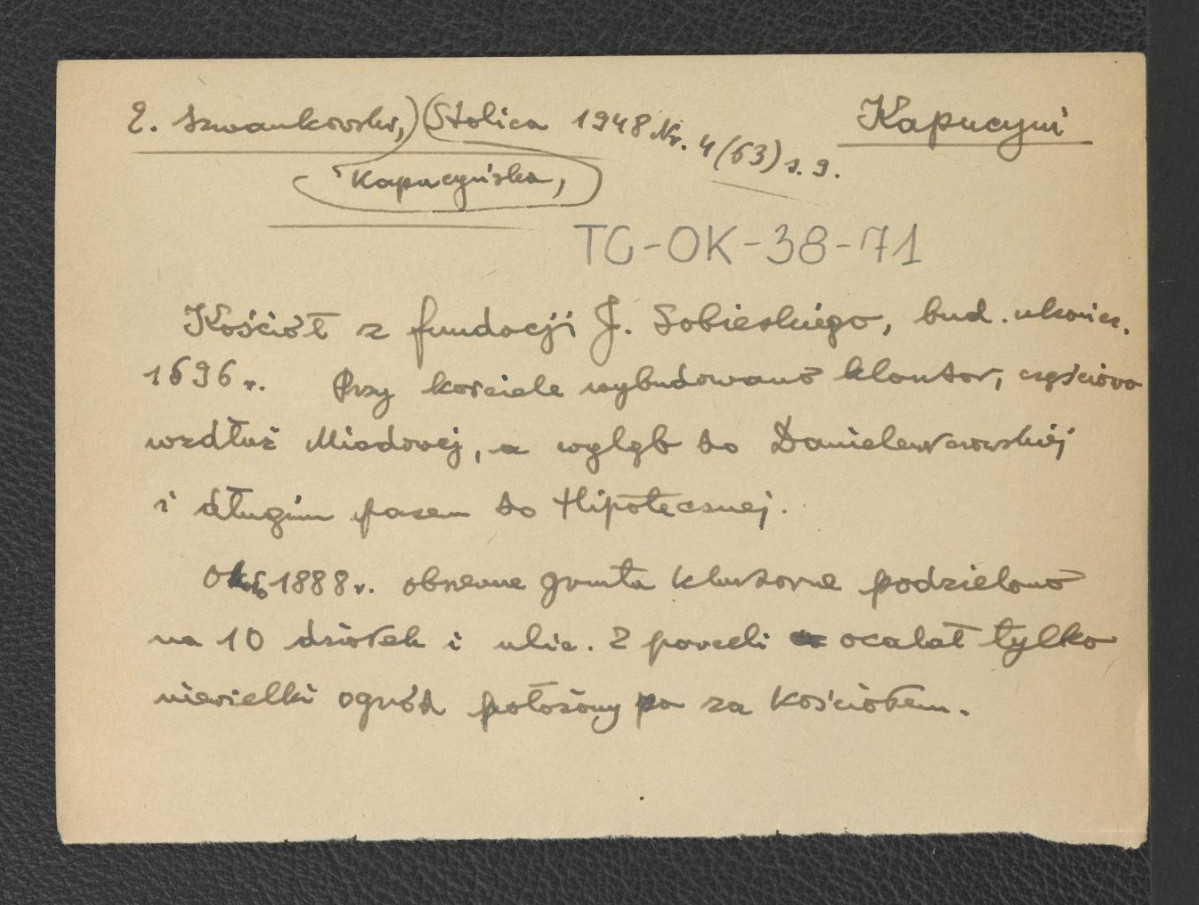 E. Szwankowski, (Stolica 1948 Nr. 4 (63) s. 9.
Kapucyni
Kapucyńska,
TG-OK-38-71
Kościół z fundacji J. Sobieskiego, bud. ukończ.
1696 r. Przy kościele wybudowano klasztor, częściowo
wzdłuż Miodowej, a wgłąb do Daniłowiczowskiej
i długim pasem do Hipotecznej.
Ok. 1888 r. obszerne grunta klasztorne podzielono
na 10 działek i ulic. Z posesji ocalał tylko
niewielki ogród położony za kościołem.